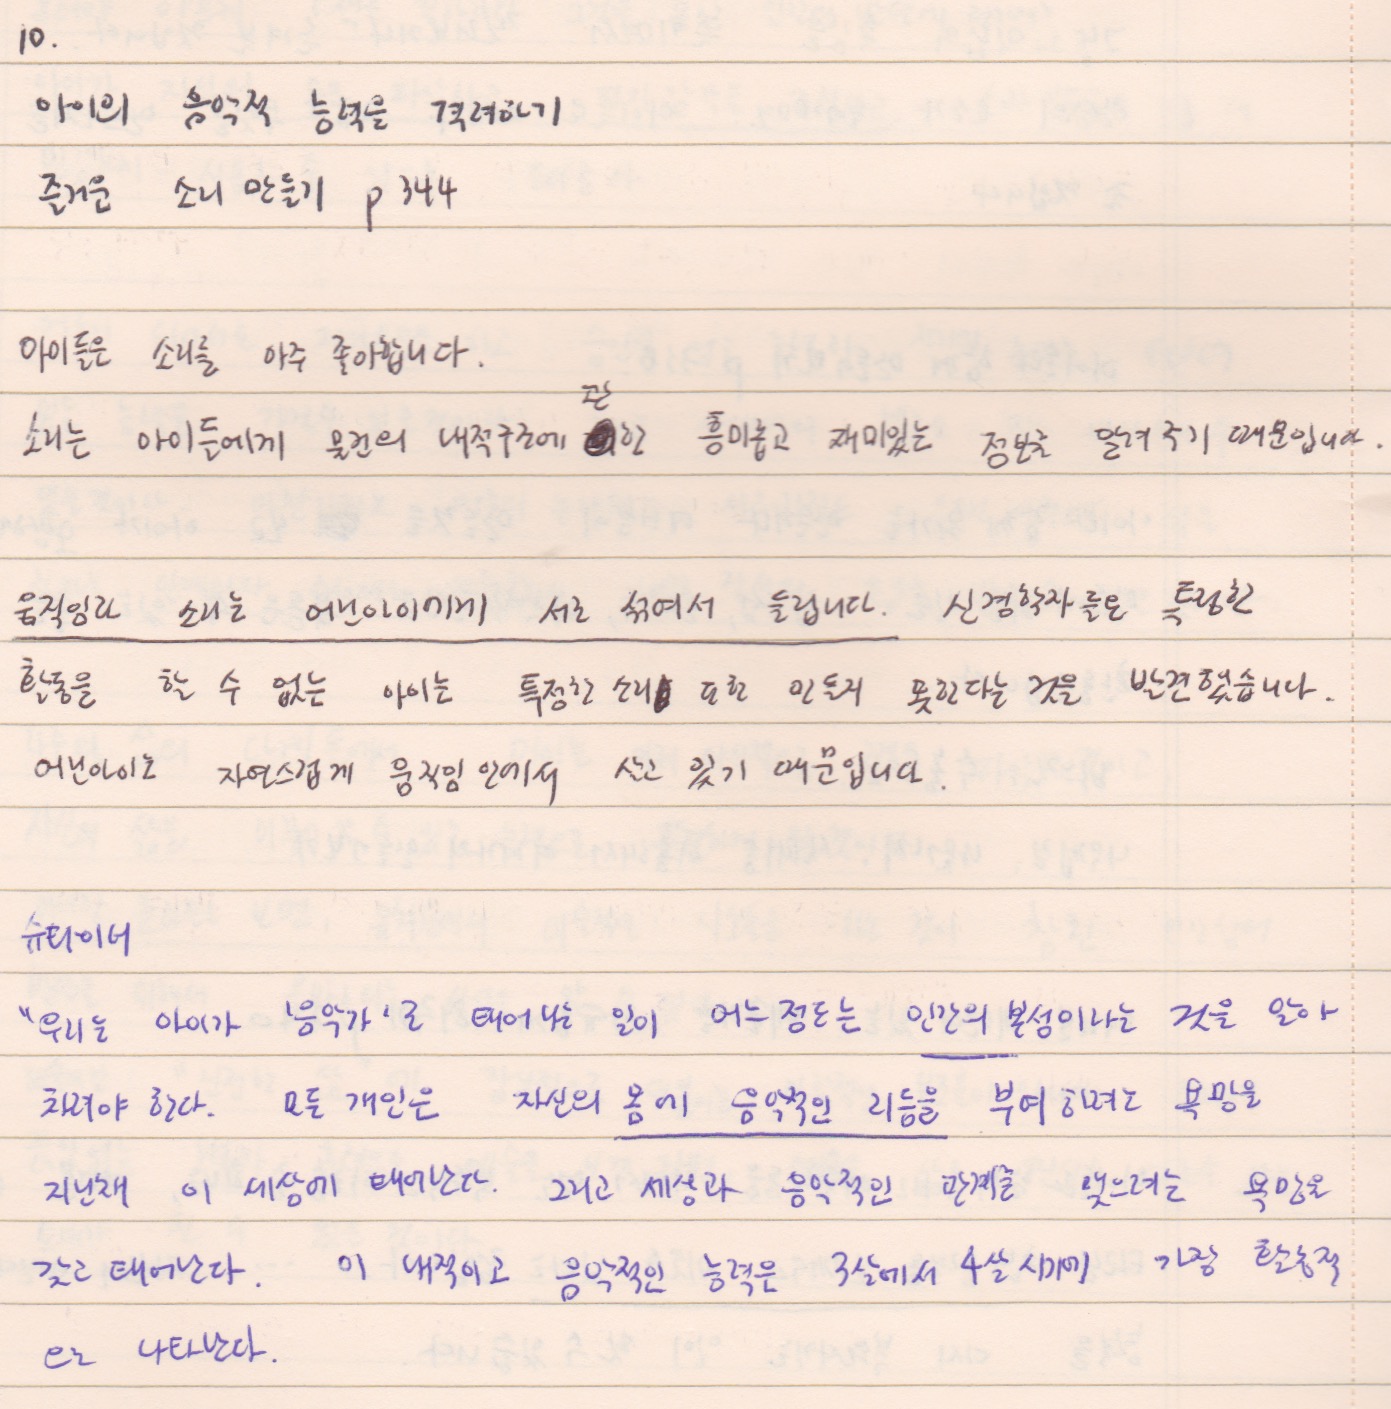 10.
아이의 음악적 능력을 격려하기
즐거운 소리 만들기 p 344
아이들은 소리를 아주 좋아합니다.
소리는 아이들에게 물건의 내적구조에 관한 흥미롭고 재미있는 정보를 알려주기 때문입니다.
움직임과 소리는 어린아이에게 서로 섞여서 들립니다. 신경학자들은 특정한
활동을 할 수 없는 아이는 특정한 소리 또한 만들지 못한다는 것을 발견했습니다.
어린아이는 자연스럽게 움직임 안에서 살고 있기 때문입니다.
슈타이너
"우리는 아이가 '음악가'로 태어나는 일이 어느정도는 인간의 본성이라는 것을 알아
차려야 한다. 모든 개인은 자신의 몸에 음악적인 리듬을 부여하려는 욕망을
지닌채 이 세상에 태어난다. 그리고 세상과 음악적인 관계를 맺으려는 욕망을
갖고 태어난다. 이 내적이고 음악적인 능력은 3살에서 4살 시기에 가장 활동적
으로 나타난다.